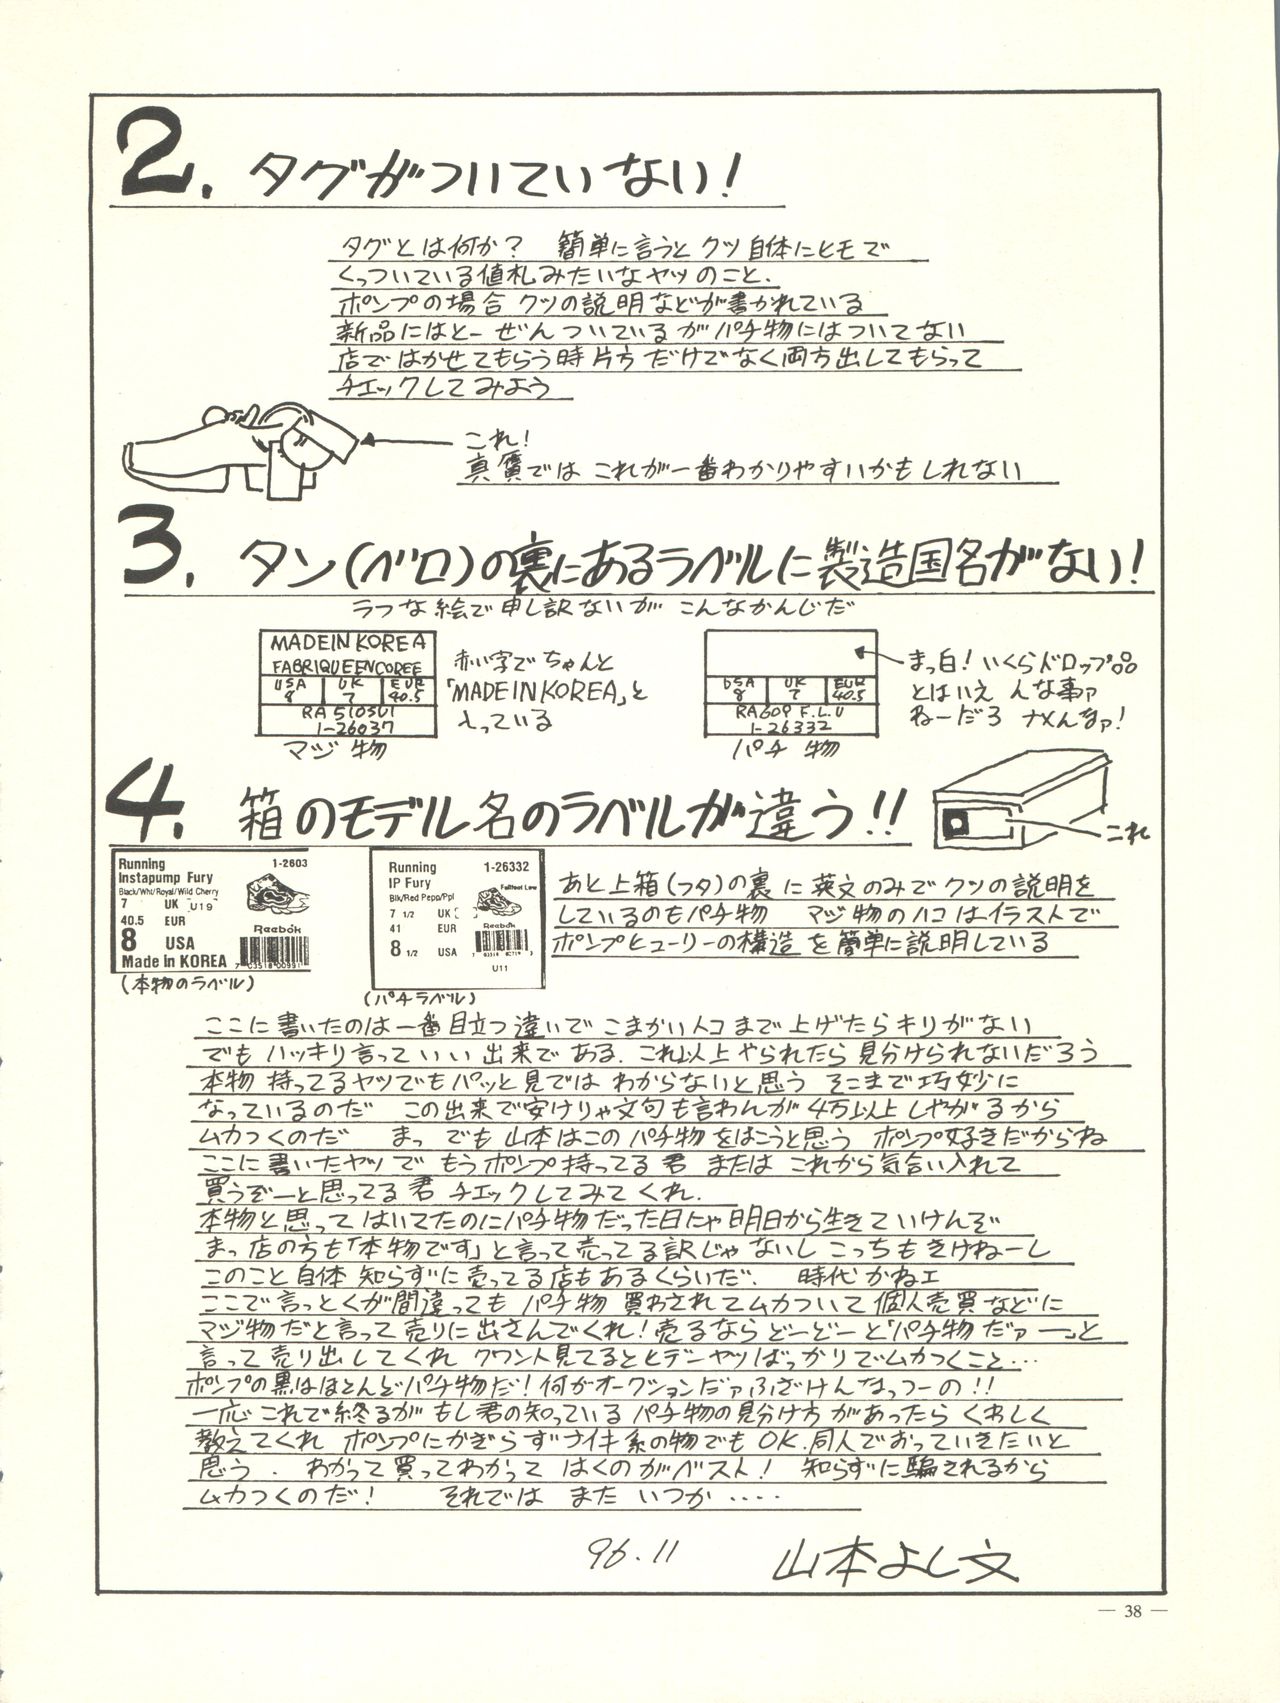 2. タグがついていない!
タグとは何か? 簡単に言うとクツ自体にヒモで
くっついている値札みたいなヤツのこと.
ポンプの場合 クツの説明などが書かれている
新品にはとーぜんついているがパチ物にはついてない
店ではかせてもらう時片方だけでなく両方出してもらって
チェックしてみよう
これ!
真贋では これが一番わかりやすいかもしれない
3. タン(ベロ)の裏にあるラベルに製造国名がない!
ラフな絵で申し訳ないが こんなかんじだ
MADE IN KOREA
FABRIQUE EN COREE
USA 8 UK 7 EUR 40.5
RA 510501
1-26037
マジ物
赤い字でちゃんと
「MADE IN KOREA」と
入っている
USA 8 UK 7 EUR 40.5
RA609 F.L.U
1-26332
パチ物
まっ白! いくらドロップ品
とはいえ んな事ァ
ねーだろ ナメんなァ!
4. 箱のモデル名のラベルが違う!!
これ
Running 1-2603
Instapump Fury
Black/Wht/Royal/Wild Cherry
7 UK U19
40.5 EUR
8 USA
Reebok
Made in KOREA
(本物のラベル)
Running 1-26332
IP Fury
Blk/Red Pepp/Ppl
7 1/2 UK
41 EUR
Reebok
8 1/2 USA
U11
(パチラベル)
あと上箱(フタ)の裏に英文のみでクツの説明を
しているのもパチ物 マジ物のハコはイラストで
ポンプヒューリーの構造を簡単に説明している
ここに書いたのは一番目立つ違いで こまかいトコまで上げたらキリがない
でもハッキリ言っていい出来である. これ以上やられたら見分けられないだろう
本物持ってるヤツでもパッと見ではわからないと思う そこまで巧妙に
なっているのだ この出来で安けりゃ文句も言わんが4万以上しやがるから
ムカつくのだ まっ でも山本はこのパチ物をはこうと思う ポンプ好きだからね
ここに書いたヤツで もうポンプ持ってる君 または これから気合い入れて
買うぞーと思ってる君 チェックしてみてくれ.
本物と思ってはいてたのにパチ物だった日にゃ明日から生きていけんぞ
まっ店の方も「本物です」と言って売ってる訳じゃないし こっちもきけねーし
このこと自体知らずに売ってる店もあるくらいだ. 時代かねェ
ここで言っとくが間違ってもパチ物買わされてムカついて個人売買などに
マジ物だと言って売りに出さんでくれ!売るならどーどーと「パチ物だァー」と
言って売り出してくれ クワント見てるとヒデーヤツばっかりでムカつくこと…
ポンプの黒はほとんどパチ物だ!何がオークションだァふざけんなっつーの!!
一応これで終るがもし君の知っているパチ物の見分け方があったらくわしく
教えてくれ ポンプにかぎらずナイキ系の物でもOK.同人でおっていきたいと
思う. わかって買ってわかってはくのがベスト! 知らずに騙されるから
ムカつくのだ! それでは また いつか ‥‥
96.11 山本よし文
— 38 —